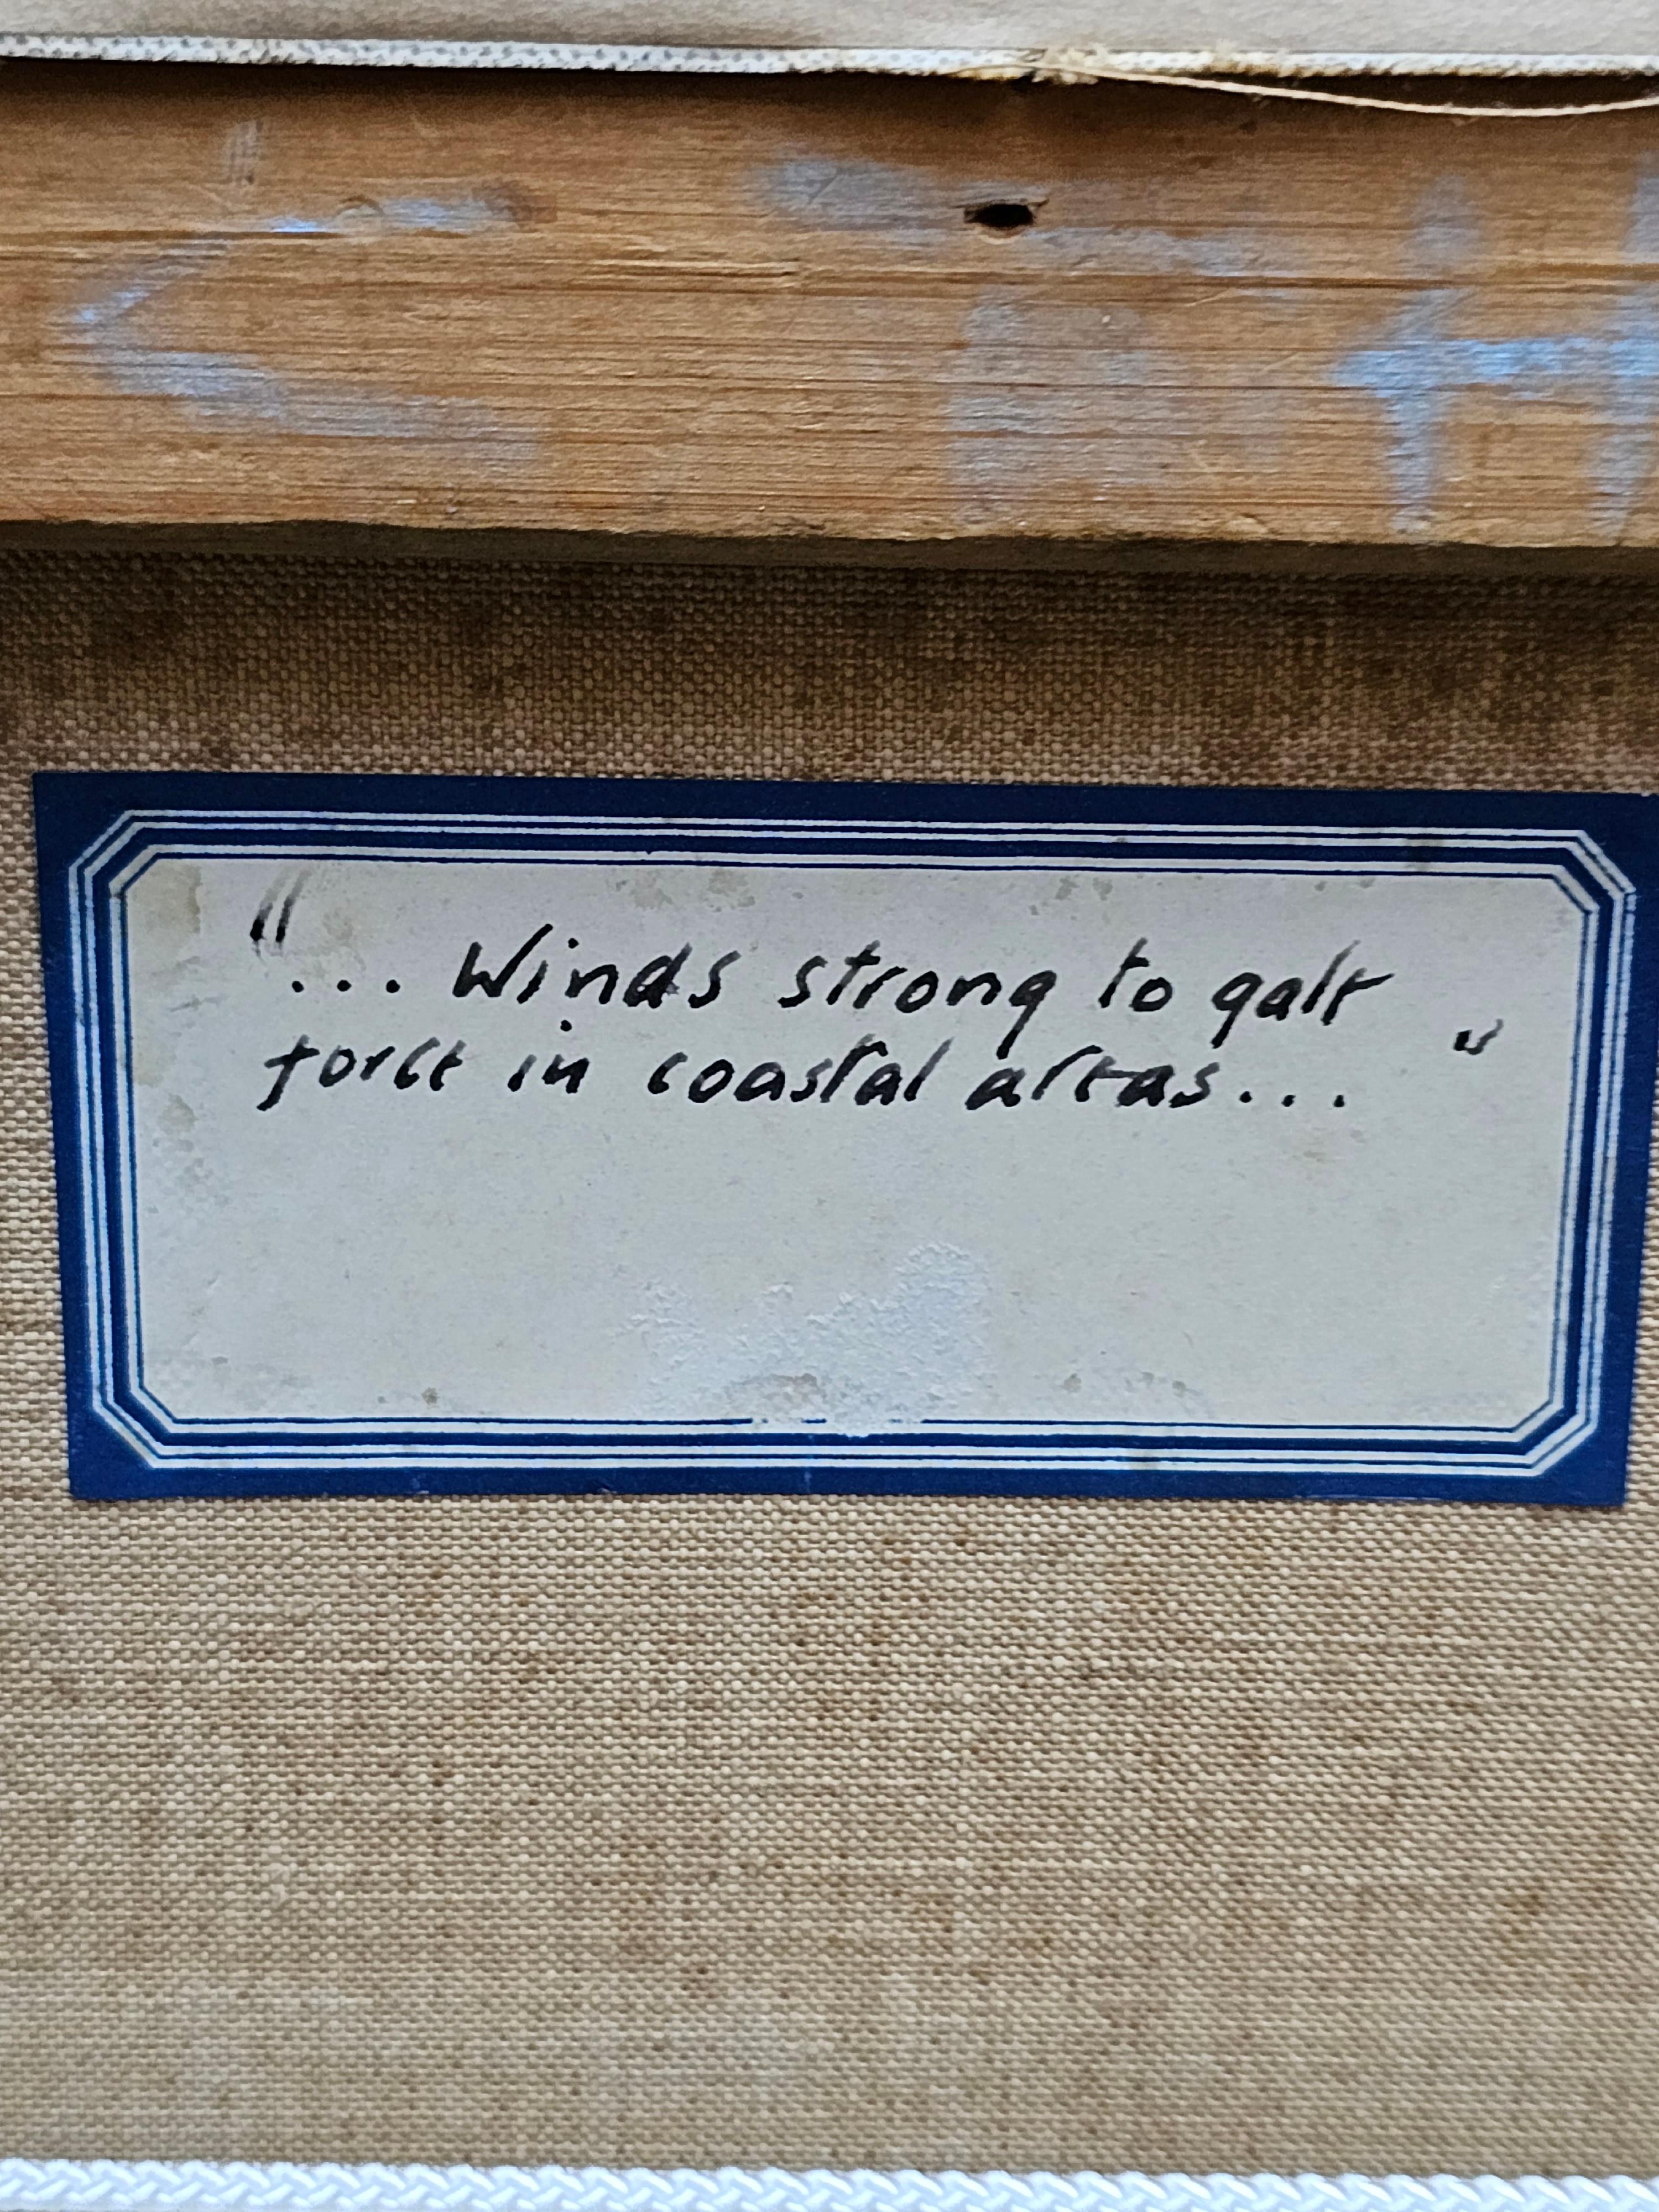 "... Winds strong to gale
force in coastal areas... "